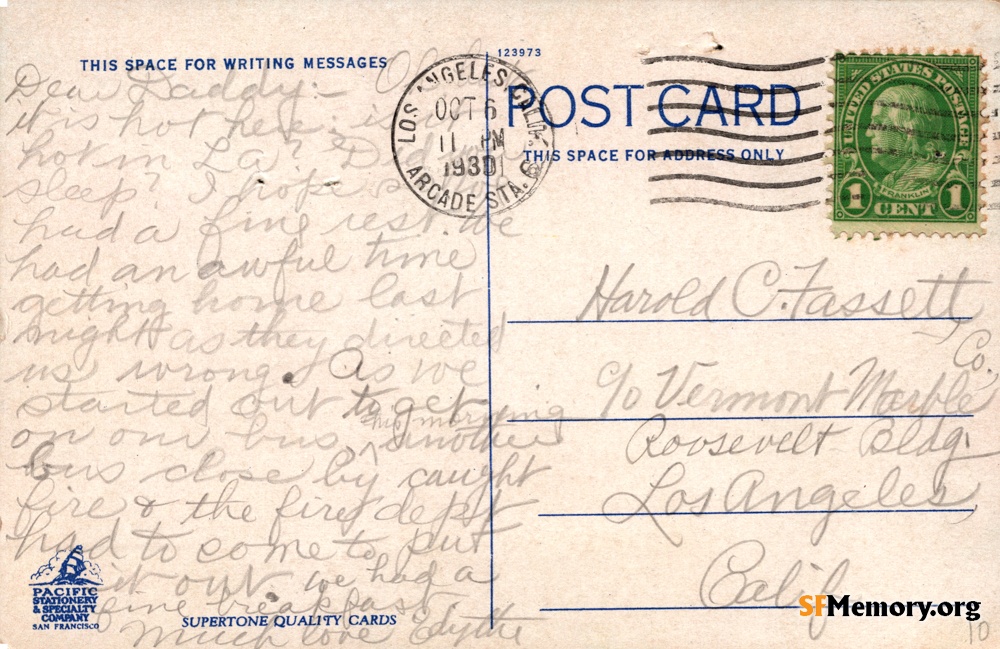 THIS SPACE FOR WRITING MESSAGES
Dear Daddy:- Oh
it is hot here: is it
hot in La? Did you
sleep? I hope
had a fine rest. We
had an awful time
getting home last
night as they directed
us wrong. As we
started out to get
on our bus, this morning another
bus close by caught
fire & the fire dept
had to come to put
it out. we had a
fine breakfast.
Much love Edythe
PACIFIC
STATIONERY
& SPECIALTY
COMPANY
SAN FRANCISCO
SUPERTONE QUALITY CARDS
123973
POST CARD
THIS SPACE FOR ADDRESS ONLY
LOS ANGELES, CALIF.
OCT 6
11 PM
1930
ARCADE STA.
UNITED STATES POSTAGE
FRANKLIN
1 CENT 1
Harold C. Fassett
c/o Vermont Marble Co.
Roosevelt Bldg.
Los Angeles
Calif
SFMemory.org
10